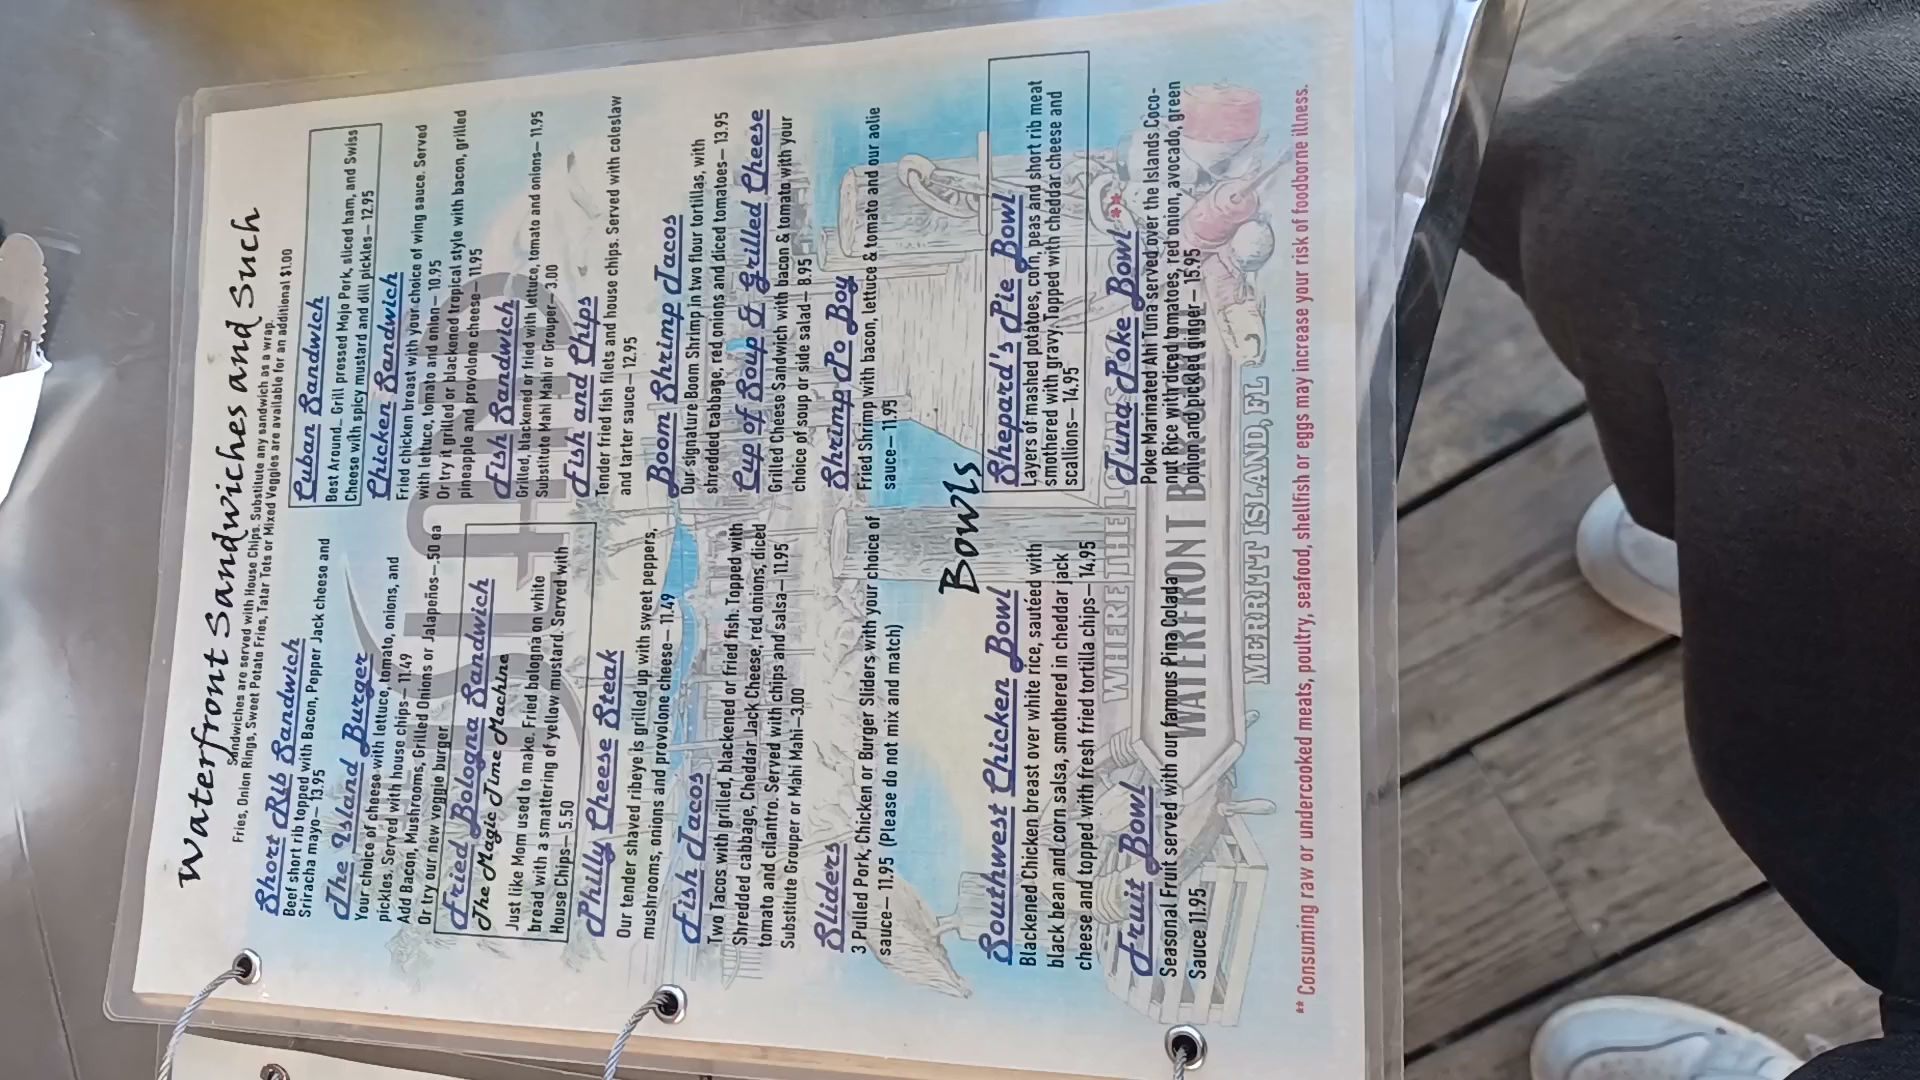 Waterfront Sandwiches and Such
Sandwiches are served with House Chips. Substitute any sandwich as a wrap.
Fries, Onion Rings, Sweet Potato Fries, Tatar Tots or Mixed Veggies are available for an additional $1.00
Short Rib Sandwich
Beef short rib topped with Bacon, Pepper Jack cheese and
Sriracha mayo– 13.95
The Island Burger
Your choice of cheese with lettuce, tomato, onions, and
pickles. Served with house chips- 11.49
Add Bacon, Mushrooms, Grilled Onions or Jalapeños–.50 ea
Or try our new voggie burger
Fried Bologna Sandwich
The Magic Time Machine
Just like Mom used to make. Fried bologna on white
bread with a smattering of yellow mustard. Served with
House Chips– 5.50
Philly Cheese Steak
Our tender shaved ribeye is grilled up with sweet peppers,
mushrooms, onions and provolone cheese– 11.49
Fish Tacos
Two Tacos with grilled, blackened or fried fish. Topped with
Shredded cabbage, Cheddar Jack Cheese, red onions, diced
tomato and cilantro. Served with chips and salsa– 11.95
Substitute Grouper or Mahi Mahi–3.00
Sliders
3 Pulled Pork, Chicken or Burger Sliders with your choice of
sauce– 11.95 (Please do not mix and match)
Cuban Sandwich
Best Around… Grill pressed Mojo Pork, sliced ham, and Swiss
Cheese with spicy mustard and dill pickles– 12.95
Chicken Sandwich
Fried chicken breast with your choice of wing sauce. Served
with lettuce, tomato and onion– 10.95
Or try it grilled or blackened tropical style with bacon, grilled
pineapple and provolone cheese– 11.95
Fish Sandwich
Grilled, blackened or fried with lettuce, tomato and onions– 11.95
Substitute Mahi Mahi or Grouper– 3.00
Fish and Chips
Tender fried fish filets and house chips. Served with coleslaw
and tarter sauce– 12.95
Boom Shrimp Tacos
Our signature Boom Shrimp in two flour tortillas, with
shredded cabbage, red onions and diced tomatoes– 13.95
Cup of Soup & Grilled Cheese
Grilled Cheese Sandwich with bacon & tomato with your
choice of soup or side salad– 8.95
Shrimp Po Boy
Fried Shrimp with bacon, lettuce & tomato and our aolie
sauce– 11.95
Bowls
Southwest Chicken Bowl
Blackened Chicken breast over white rice, sautéed with
black bean and corn salsa, smothered in cheddar jack
cheese and topped with fresh fried tortilla chips– 14.95
Fruit Bowl
Seasonal Fruit served with our famous Pina Colada
Sauce 11.95
Shepard's Pie Bowl
Layers of mashed potatoes, corn, peas and short rib meat
smothered with gravy. Topped with cheddar cheese and
scallions– 14.95
Tuna Poke Bowl **
Poke Marinated Ahi Tuna served over the Islands Coco-
nut Rice with diced tomatoes, red onion, avocado, green
onion and pickled ginger– 15.95
WHERE THE
WATERFRONT
MERRITT ISLAND, FL
** Consuming raw or undercooked meats, poultry, seafood, shellfish or eggs may increase your risk of foodborne illness.